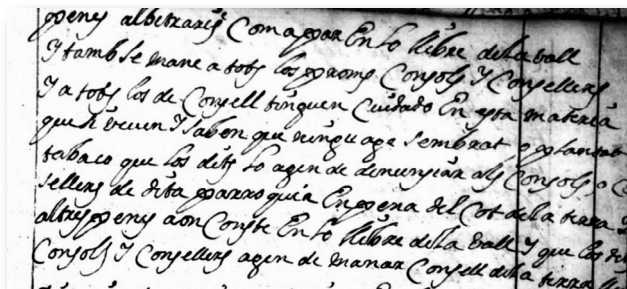 penes albitraries Com appar En lo llibre de la vall
Y tambe se mane a tots los proms Consols Y Consellers
Y a tots los de Consell tinguen Cuidado En esta materia
que si veuen Y saben que ningu age sembrat o plantat
tabaco que los dits lo agen de denunciar als Consols o
sellers de dita parroquia En pena del Cot de la terra Y
altres penes aon Conste En lo llibre de la vall Y que los
Consols Y Consellers agen de manar Consell de la terra